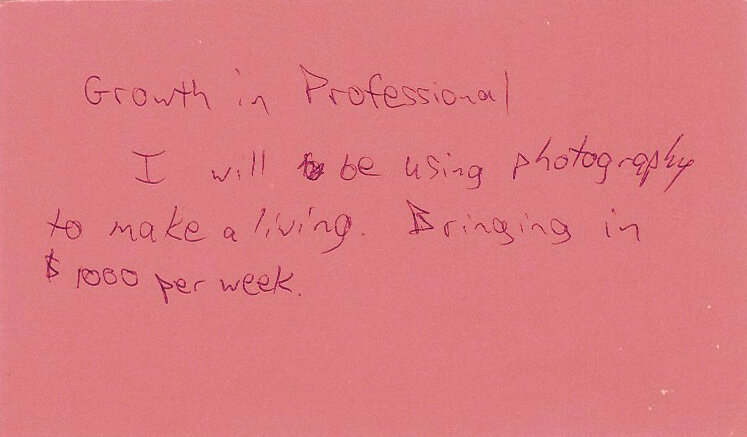 Growth in Professional
I will be using photography
to make a living. Bringing in
$1000 per week.